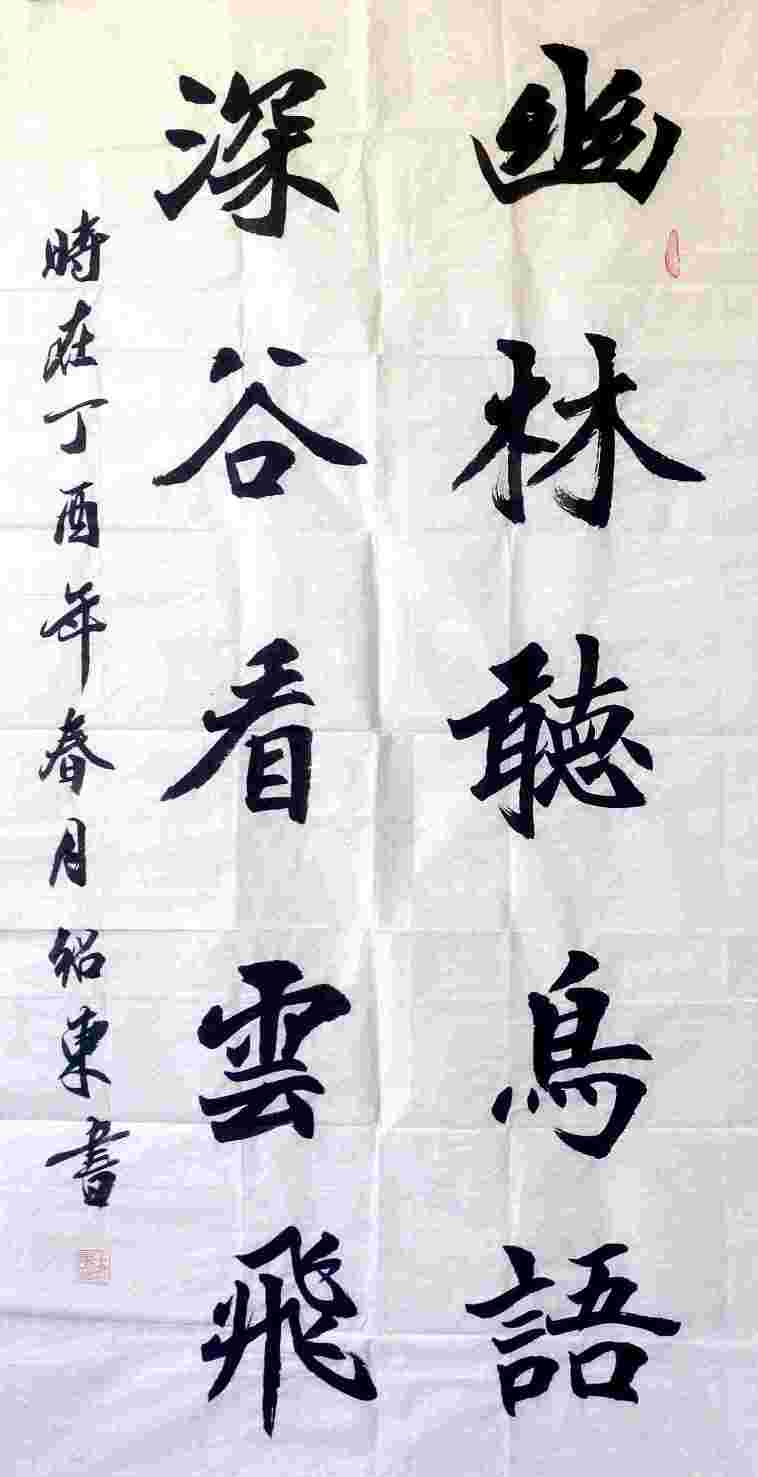 幽林聽鳥語
深谷看雲飛
時在丁酉年春月紹東書